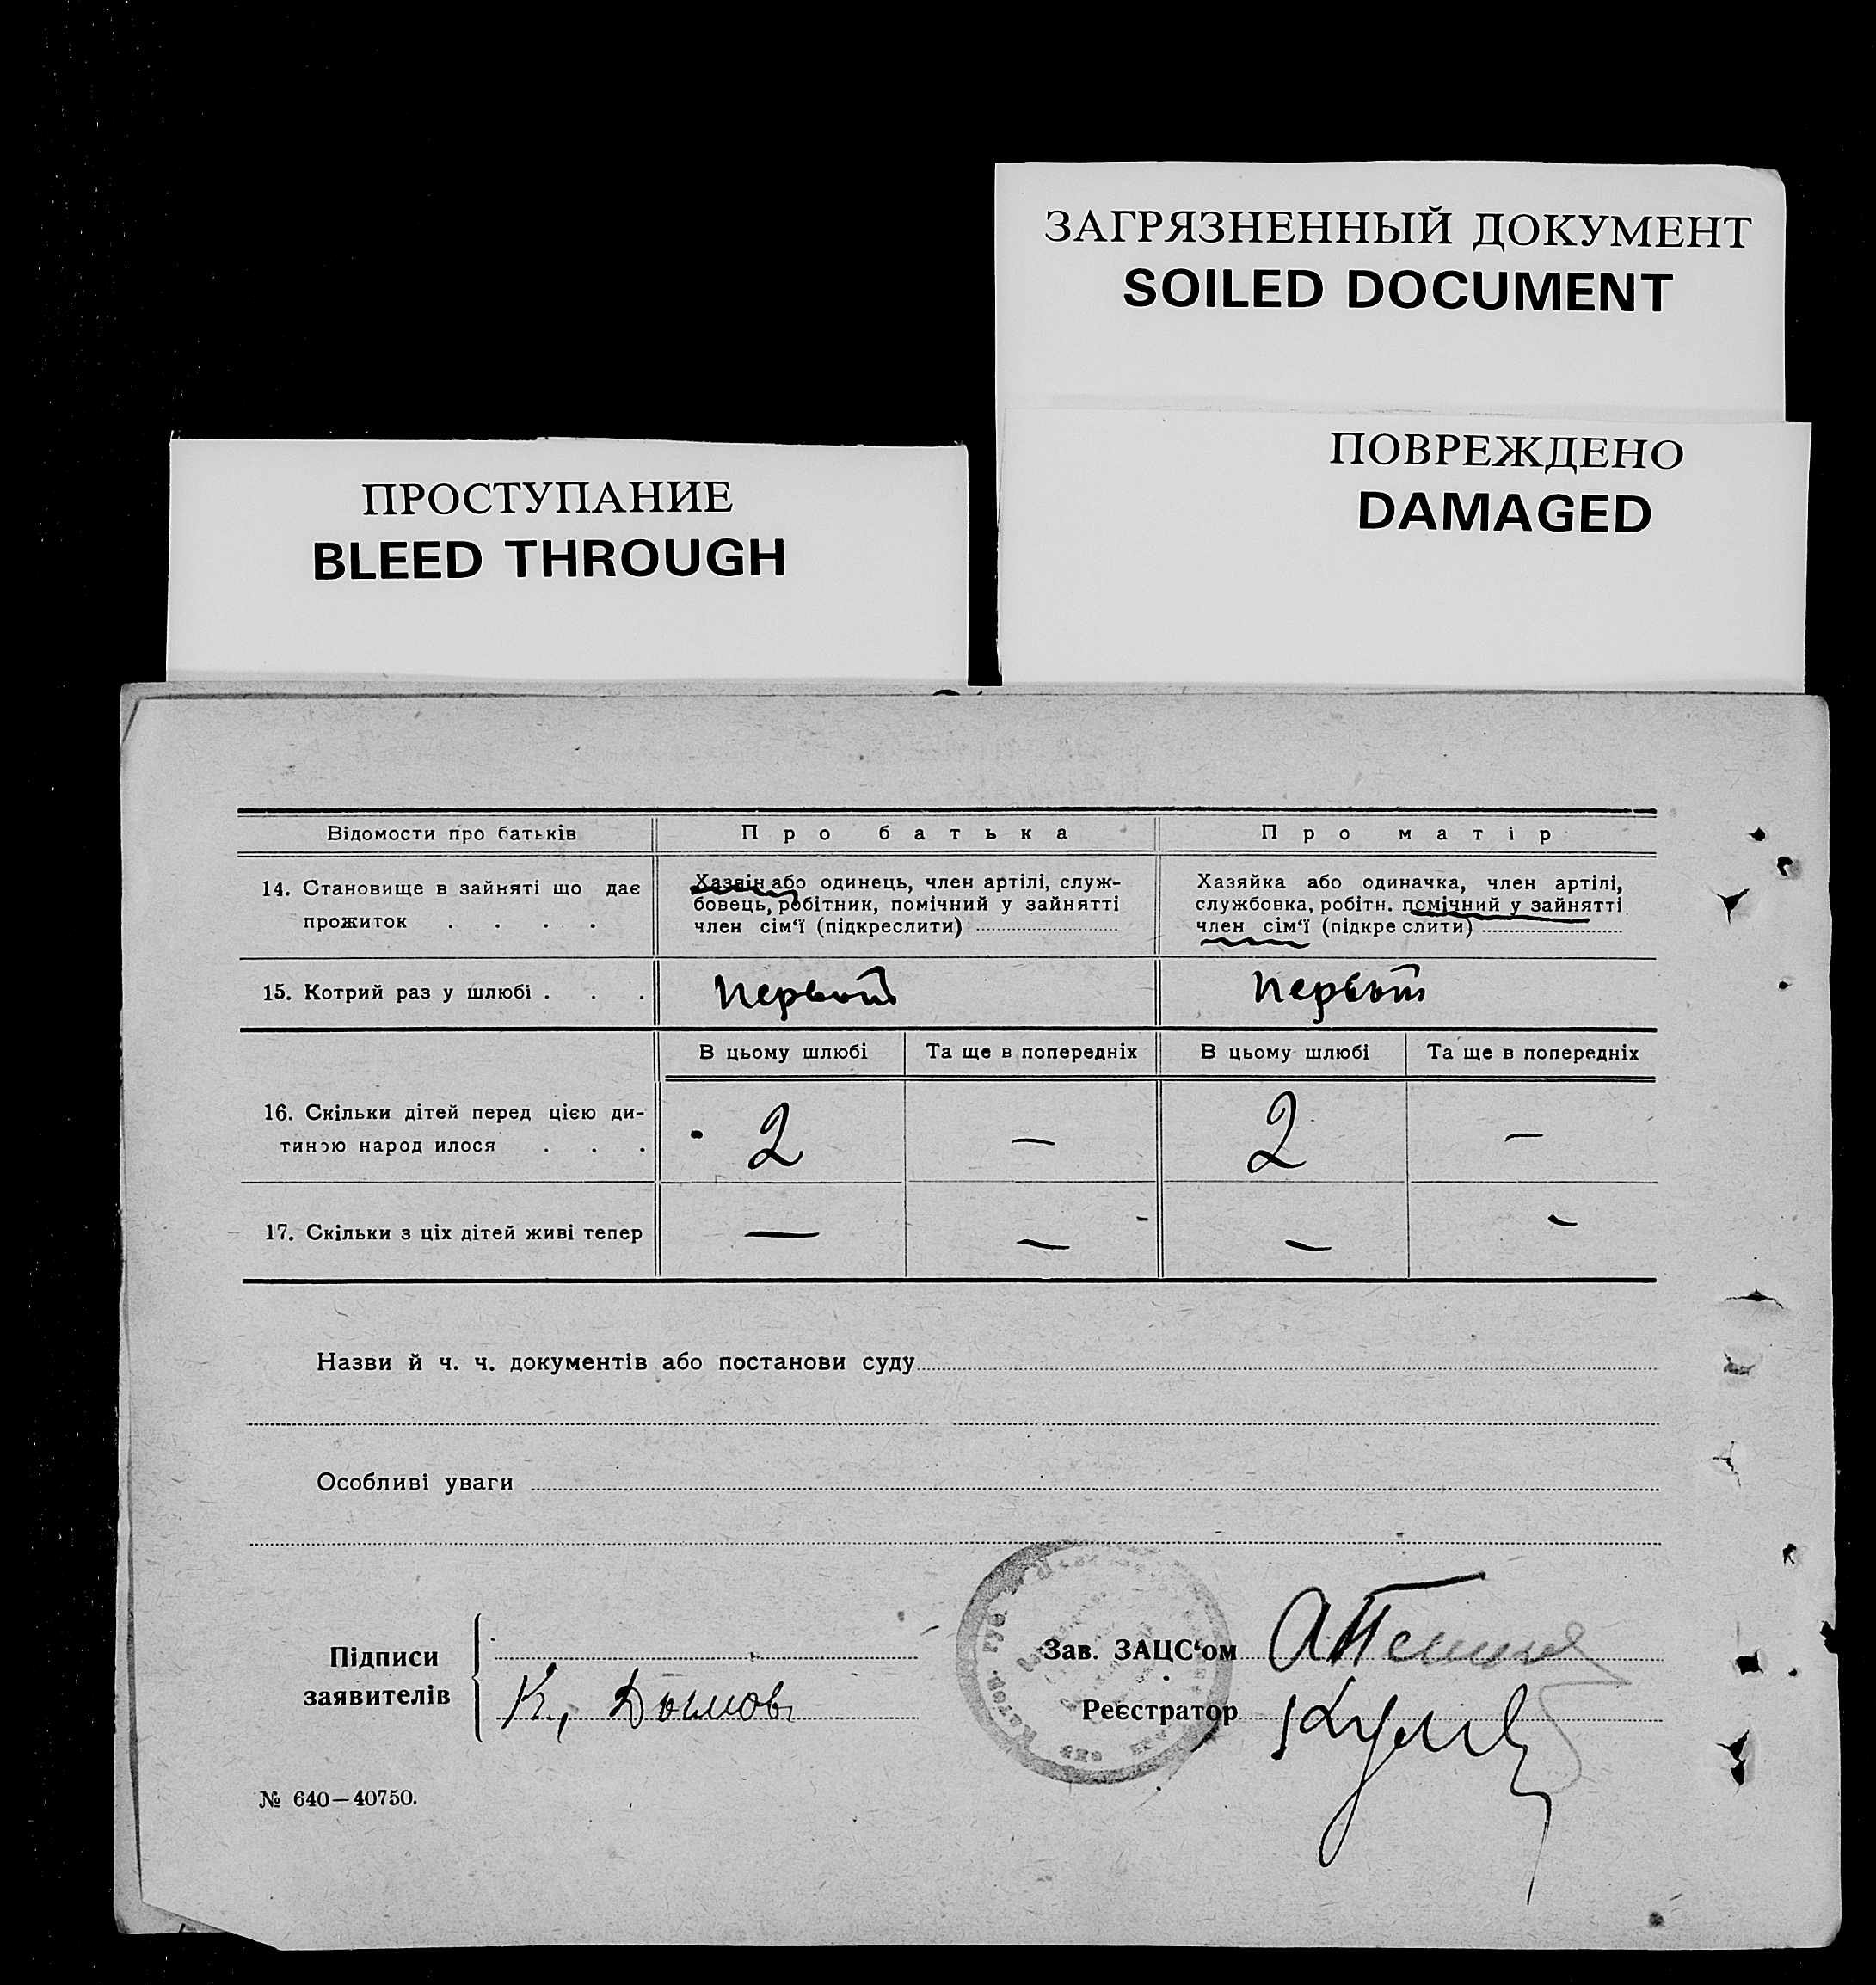 ЗАГРЯЗНЕННЫЙ ДОКУМЕНТ
SOILED DOCUMENT
ПОВРЕЖДЕНО
DAMAGED
ПРОСТУПАНИЕ
BLEED THROUGH
Відомости про батьків Про батька Про матір
14. Становище в зайняті що дає
прожиток . . . .
Хазяін або одинець, член артілі, служ-
бовець, робітник, помічний у зайнятті
член сім‘ї (підкреслити)
Хазяйка або одиначка, член артілі,
службовка, робітн. помічний у зайнятті
член сім‘ї (підкре слити)
15. Котрий раз у шлюбі . . . первый первый
В цьому шлюбі Та ще в попередніх В цьому шлюбі Та ще в попередніх
16. Скільки дітей перед цією ди-
тиною народ илося . . .
2 — 2 —
17. Скільки з ціх дітей живі тепер — — — —
Назви й ч. ч. документів або постанови суду
Особливі уваги
Підписи
заявителів
К,
Зав. ЗАЦС‘ом
Реєстратор
№ 640—40750.